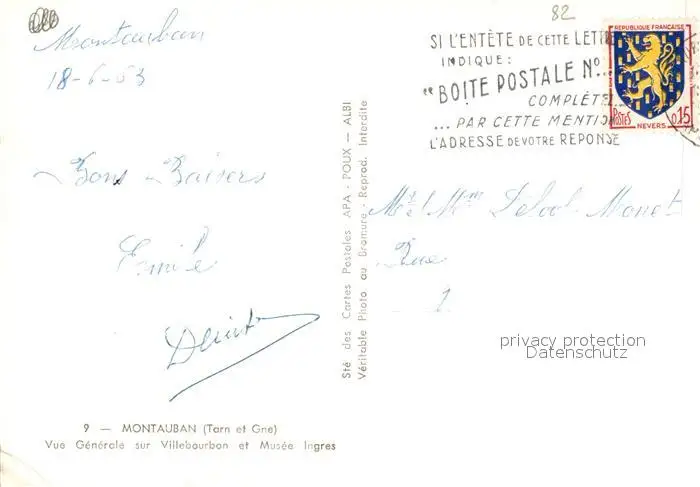 Montauban
18-6-63
Bons Baisers
Emile
9 — MONTAUBAN (Tarn et Gne)
Vue Générale sur Villebourbon et Musée Ingres
Sté des Cartes Postales APA - POUX — ALBI
Véritable Photo au Bromure - Reprod. Interdite
82
SI L'ENTÊTE DE CETTE LETTRE
INDIQUE :
"BOITE POSTALE N°...
COMPLÉTEZ...
... PAR CETTE MENTION
L'ADRESSE DE VOTRE REPONSE
REPUBLIQUE FRANÇAISE
POSTES 0,15
NEVERS
Mr et Mme Monet
Rue
1
privacy protection
Datenschutz